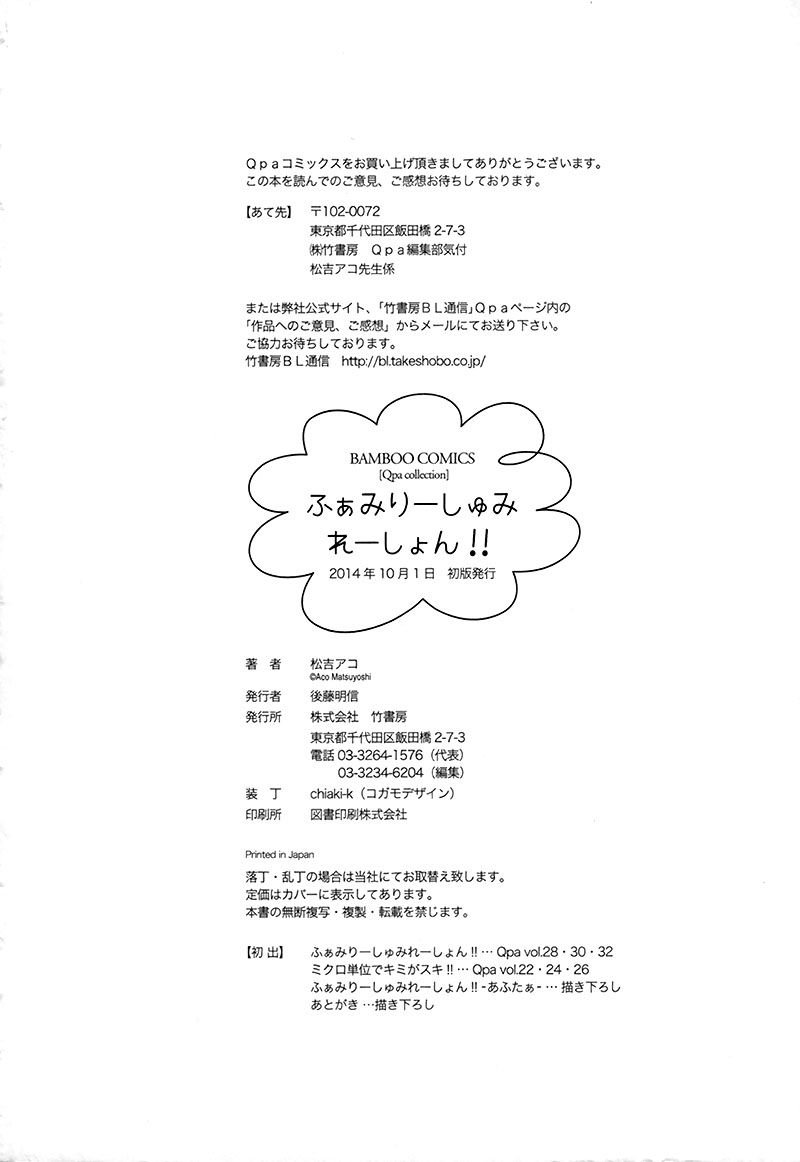 Ｑｐａコミックスをお買い上げ頂きましてありがとうございます。
この本を読んでのご意見、ご感想お待ちしております。
【あて先】 〒102-0072
東京都千代田区飯田橋 2-7-3
㈱竹書房　Ｑｐａ編集部気付
松吉アコ先生係
または弊社公式サイト、「竹書房ＢＬ通信」Ｑｐａページ内の
「作品へのご意見、ご感想」からメールにてお送り下さい。
ご協力お待ちしております。
竹書房ＢＬ通信　http://bl.takeshobo.co.jp/
BAMBOO COMICS
[Qpa collection]
ふぁみりーしゅみ
れーしょん!!
2014年10月1日　初版発行
著　者　松吉アコ
©Aco Matsuyoshi
発行者　後藤明信
発行所　株式会社　竹書房
東京都千代田区飯田橋 2-7-3
電話 03-3264-1576（代表）
03-3234-6204（編集）
装　丁　chiaki-k（コガモデザイン）
印刷所　図書印刷株式会社
Printed in Japan
落丁・乱丁の場合は当社にてお取替え致します。
定価はカバーに表示してあります。
本書の無断複写・複製・転載を禁じます。
【初 出】 ふぁみりーしゅみれーしょん!! … Qpa vol.28・30・32
ミクロ単位でキミがスキ!! … Qpa vol.22・24・26
ふぁみりーしゅみれーしょん!! -あふたぁ- … 描き下ろし
あとがき …描き下ろし